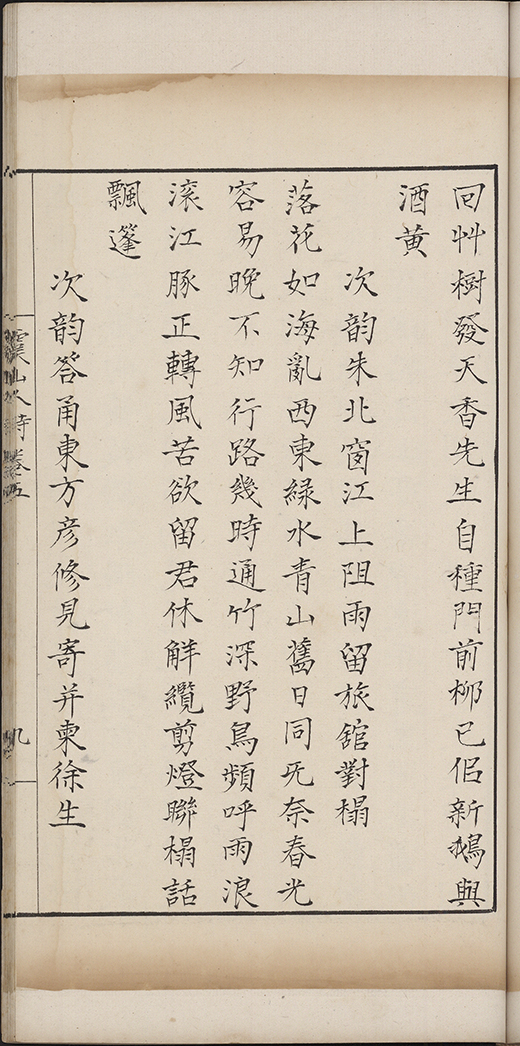 回艸樹發天香先生自種門前柳已佀新鵝與
酒黄
次韵朱北窗江上阻雨留旅舘對榻
落花如海亂西東緑水青山舊日同旡奈春光
容易晚不知行路幾時通竹深野鳥頻呼雨浪
滚江豚正轉風苦欲留君休觧纜剪燈聯榻話
飄篷
次韵答甬東方彦修見寄并柬徐生
仙人詩卷五
九